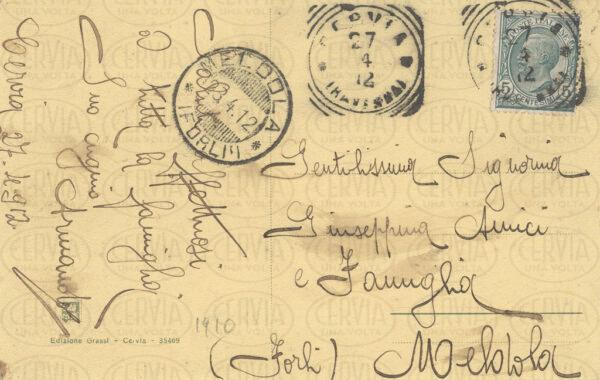 CERVIA
27
4
12
(RAVENNA)
MELDOLA
28.4.12
(FORLI')
POSTE ITALIANE
Saluti affettuosi
a tutta la famiglia
Suo cugino
Armando
Cervia 27-4-912
Gentilissima Signorina
Giuseppina Amici
e Famiglia
(Forlì) Meldola
1910
Edizione Grassi - Cervia - 35469
CERVIA
UNA VOLTA